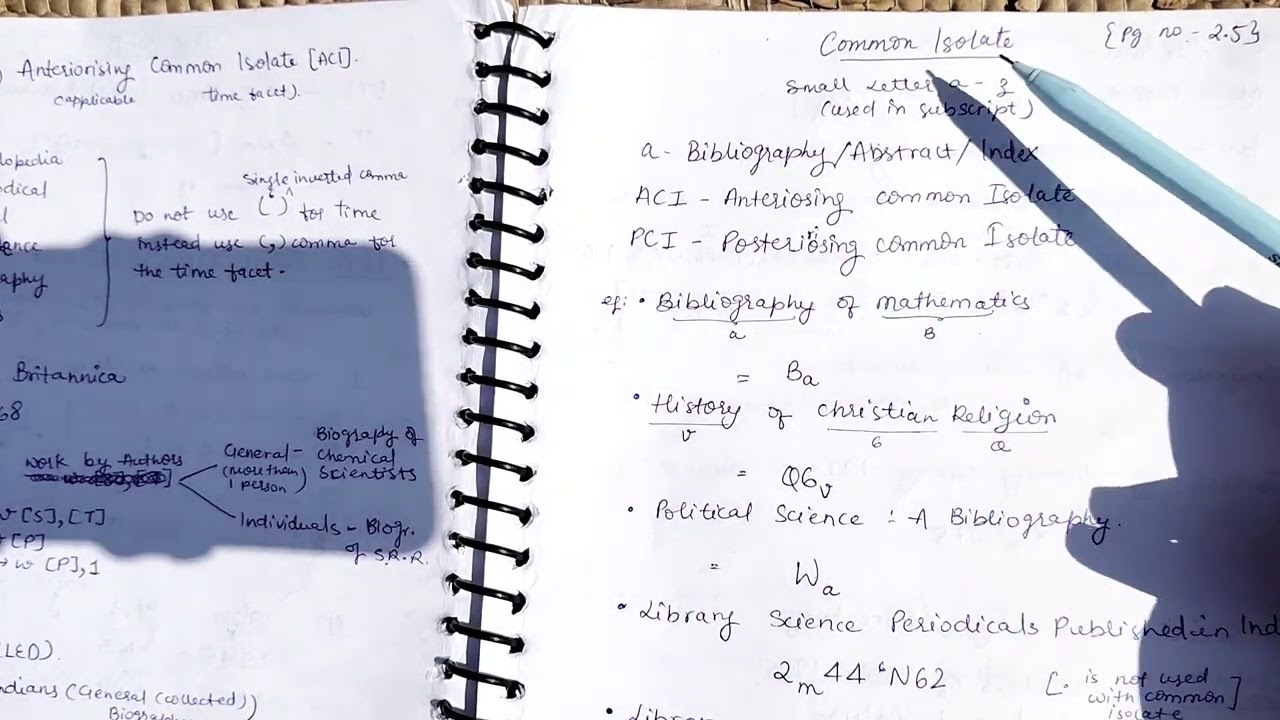 ) Anteriorising Common Isolate [ACI].
(applicable time facet).
lopedia
odical
single inverted comma
Do not use ( ' ) for time
instead use (,) comma for
the time facet.
aphy
Britannica
68
work by Authors
General - Biography of
(more than Chemical
1 person) Scientists
Individuals - Biogr.
of S.R.R.
v [S], [T]
[P]
→ w [P], 1
LED).
ndians (General (collected)
Biography
Common Isolate {Pg no. - 2.5}
Small Letter a - z
(used in subscript)
a - Bibliography/Abstract/Index
ACI - Anteriosing common Isolate
PCI - Posteriosing common Isolate
eg: • Bibliography of mathematics
a B
= Ba
• History of Christian Religion
v 6 Q
= Q6v
• Political Science : A Bibliography.
= Wa
• Library Science Periodicals Published in Ind
2m44‘N62
[. is not used
with common]
isolate
• Library